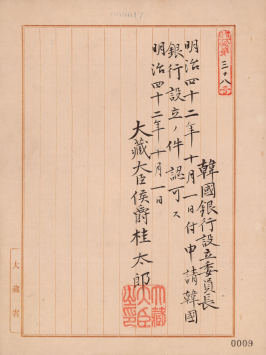 三、八
韓國銀行設立委員長
明治四十二年十月一日付申請韓國
銀行設立ノ件認可ス
明治四十二年十月一日
大藏大臣侯爵桂太郎
大藏大臣之印
大藏省
0009